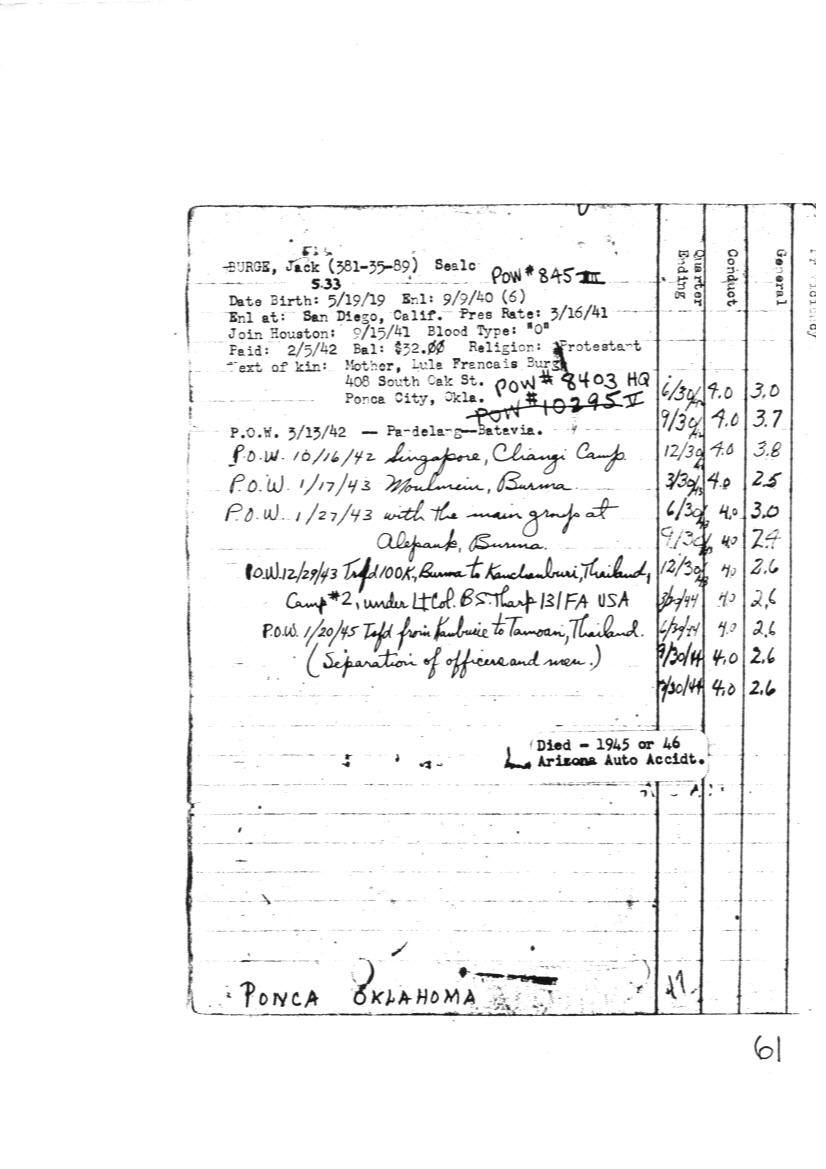 BURGE, Jack (381-35-89) Sea1c POW # 845 III
S.33
Date Birth: 5/19/19 Enl: 9/9/40 (6)
Enl at: San Diego, Calif. Pres Rate: 3/16/41
Join Houston: 9/15/41 Blood Type: "O"
Paid: 2/5/42 Bal: $32.00 Religion: Protestant
Next of kin: Mother, Lula Francais Burg
408 South Oak St. POW # 8403 HQ
Ponca City, Okla. POW # 10295 V
P.O.W. 3/13/42 — Pandelang—Batavia.
P.O.W. 10/16/42 Singapore, Chiangi Camp
P.O.W. 1/17/43 Moulmein, Burma
P.O.W. 1/27/43 with the main group at
Alepauk, Burma.
P.O.W. 12/29/43 Trfd 100K, Burma to Kanchanburi, Thailand,
Camp #2, under Lt Col. B.S. Tharp 131 FA USA
P.O.W. 1/20/45 Tsfd from Kanburie to Tamoan, Thailand.
(Separation of officers and men.)
Died - 1945 or 46
Arizona Auto Accidt.
PONCA OKLAHOMA
Quarter Ending Conduct General
6/30/42 4.0 3.0
9/30/42 4.0 3.7
12/30/42 4.0 3.8
3/30/43 4.0 2.5
6/30/43 4.0 3.0
9/30/43 4.0 2.4
12/30/43 4.0 2.6
4.0 2.6
6/30/44 4.0 2.6
9/30/44 4.0 2.6
/30/44 4.0 2.6
61